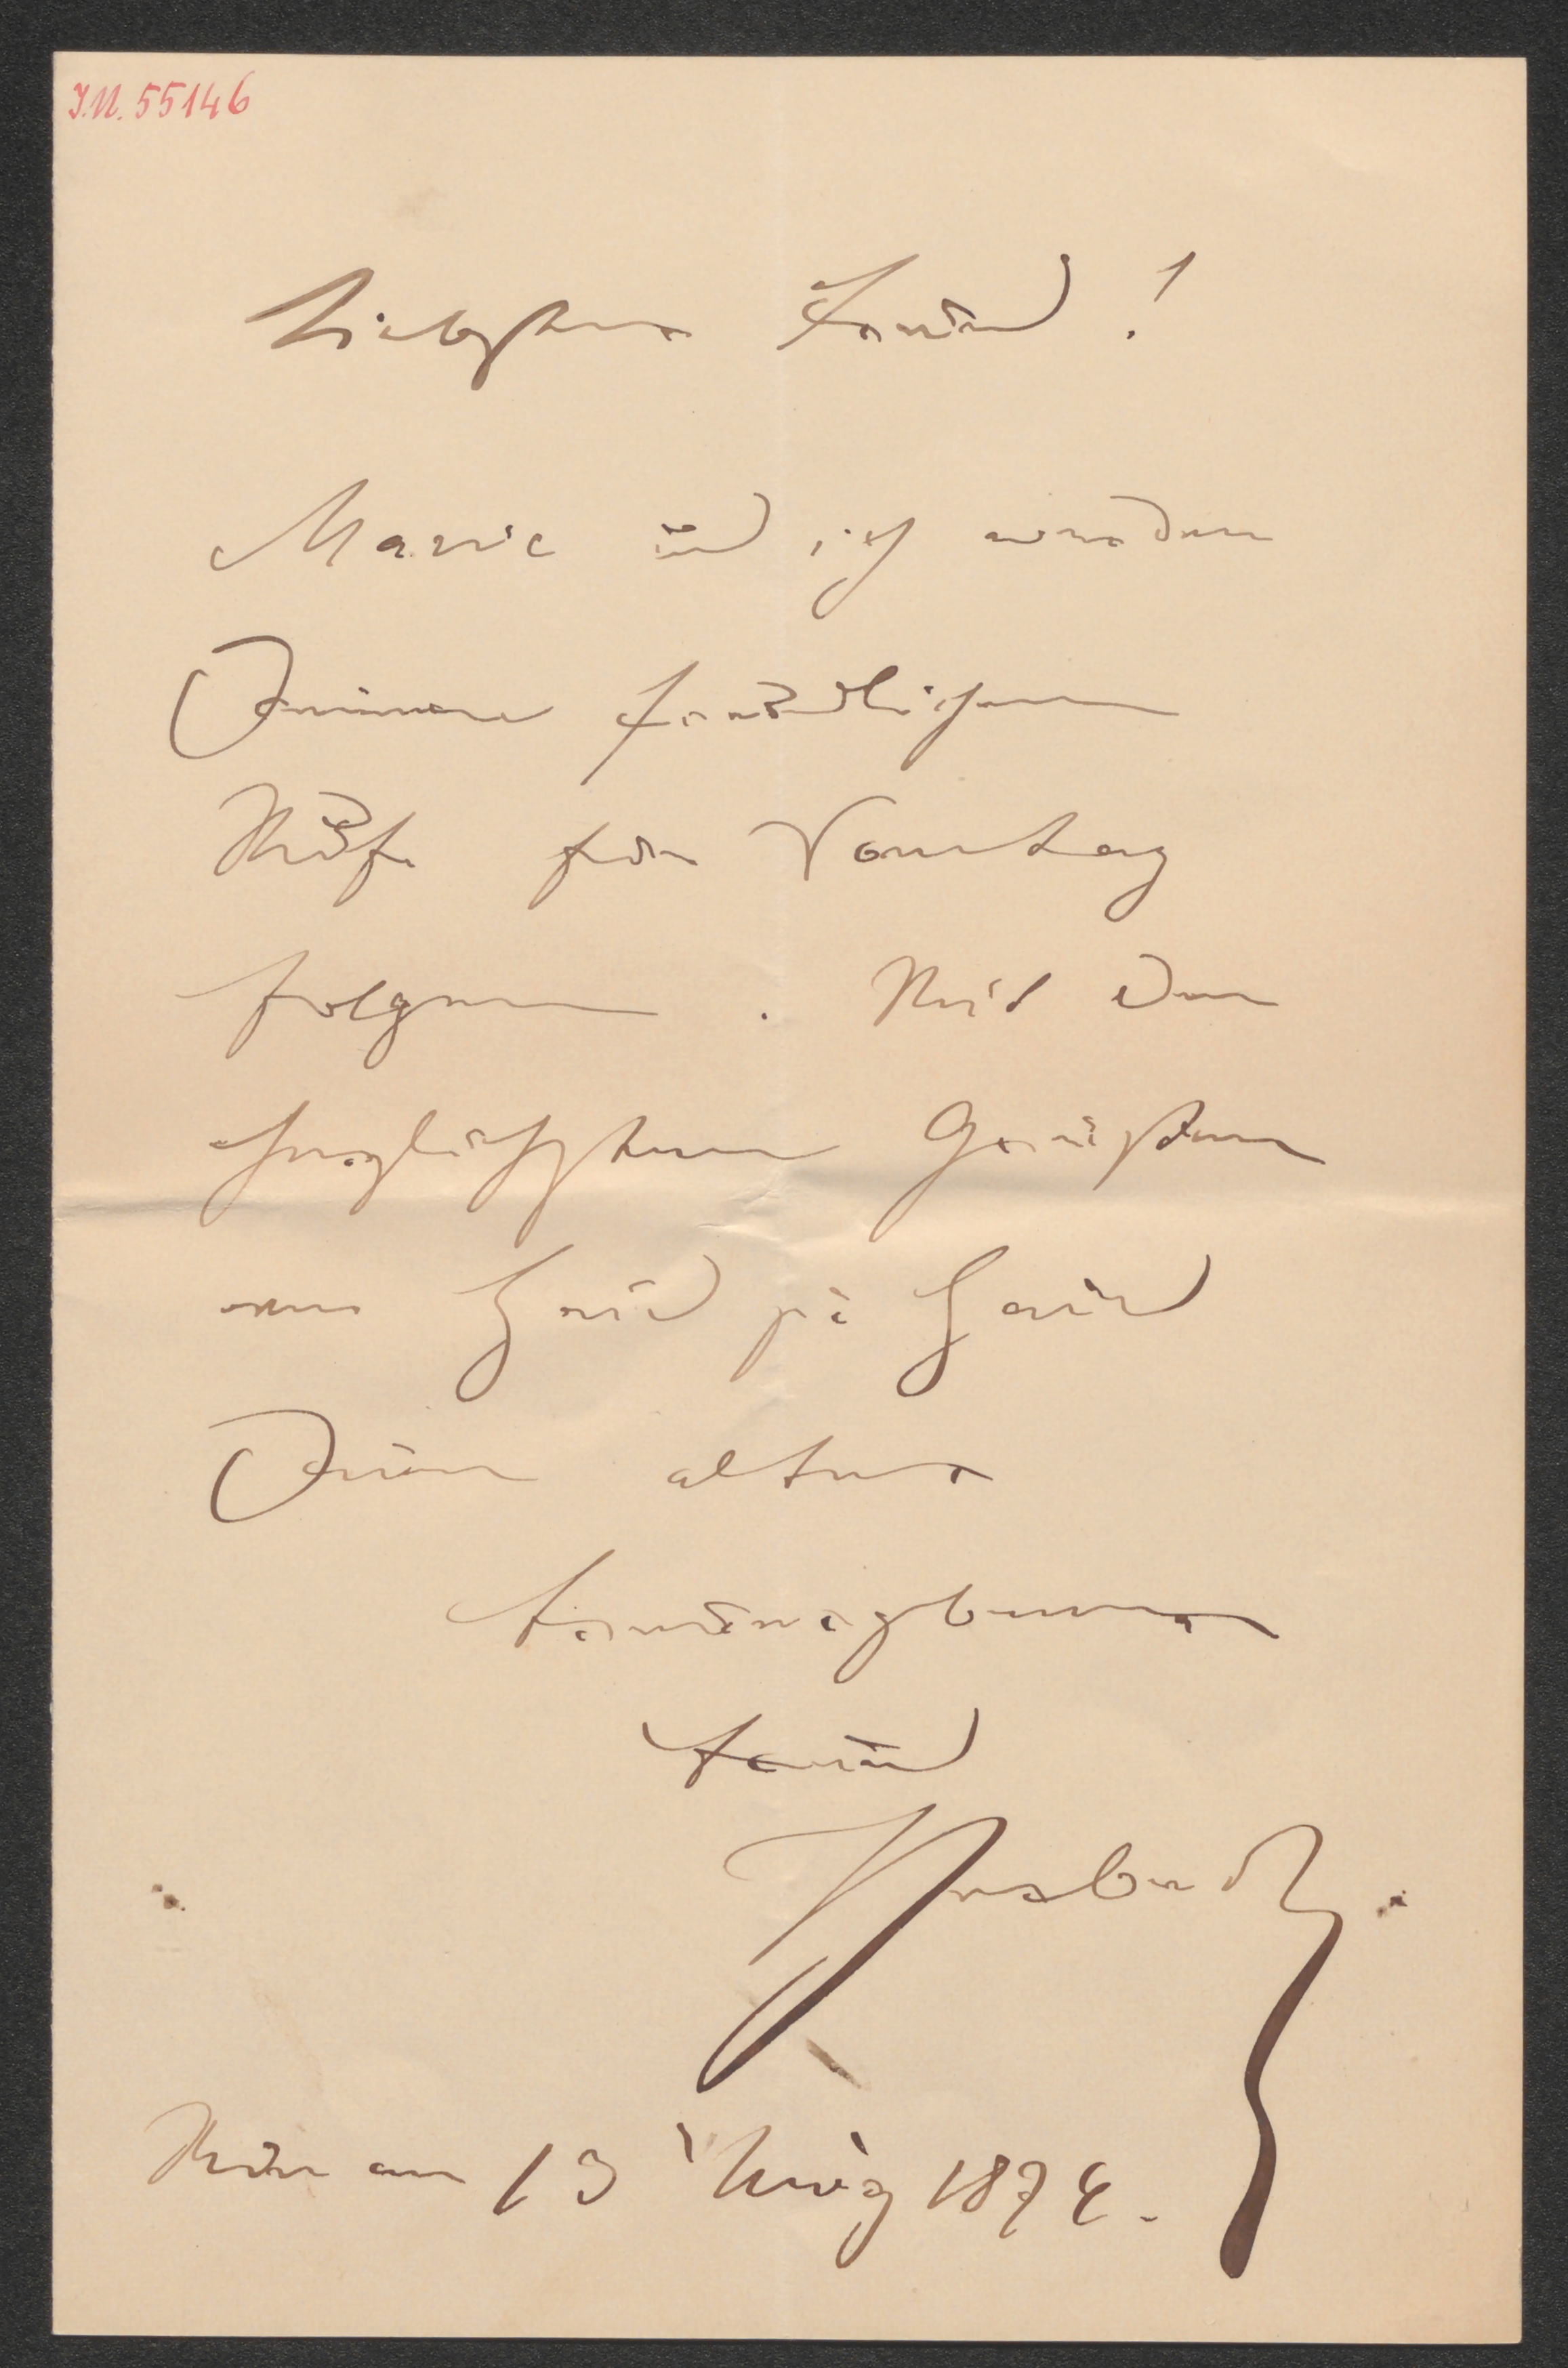 I.N. 55146
Liebster Freund!
Marie und ich werden
Deinem freundlichen
Rufe für Sonntag
folgen. Mit den
herzlichsten Grüßen
von Haus zu Haus
Dein alter
treuergebener
Freund
Wien am 13 März 1874.